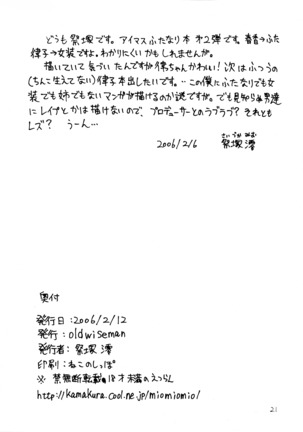 どうも祭塚です。アイマスふたなり本 オ2弾です。春香→ふた
律子→女装ですよ。わかりにくいかもしれませんが。
描いていて気づいたんですが律ちゃんかわいい!次はふつうの
(ちんこ生えてない)律子本出したいです。‥この僕にふたなりでも女
装でも姉でもないマンガが描けるのか謎ですが。でも見知らぬ男達
にレイプとかは描けないので、プロデューサーとのラブラブ?それとも
レズ? うーん…
2006/2/6 祭塚澪
奥付
発行日:2006/2/12
発行:oldwiseman
発行者:祭塚 澪
印刷:ねこのしっぽ
※ 禁無断転載。18才未満のえつらん
http://kamakura.cool.ne.jp/miomiomio/
21